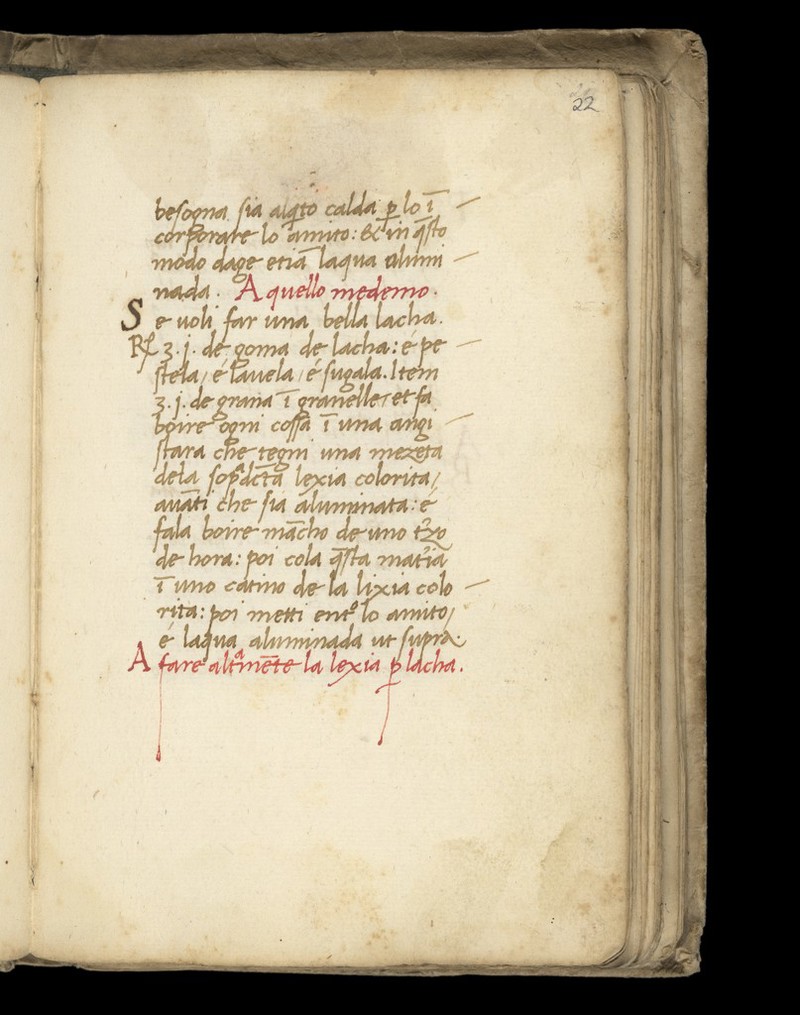 22
besogna sia alq̄to calda ꝑ lo ī —
corporare lo amito: & in q̄sto
modo dage etiā laqua alumi —
nada. A quello medemo.
Se uoli far una bella lacha.
R℞ ʒ. j. de goma de lacha: é pe —
stela, é lauela, é sugala. Item
ʒ. j. de grana ī granelle, et fa
boire ogni cossa ī una angi —
stara che tegni una mezeta
dela sopᵃdc̄ta lexia colorita,
auāti che sia aluminata: é
fala boire mācho de uno t̓zo
de hora: poi cola q̄sta mat̓ia
ī uno catino de la lixia colo —
rita: poi metti entº lo amito,
é laqua aluminada ut supra.
A fare altᵃmēte la lexia ꝑ lacha.